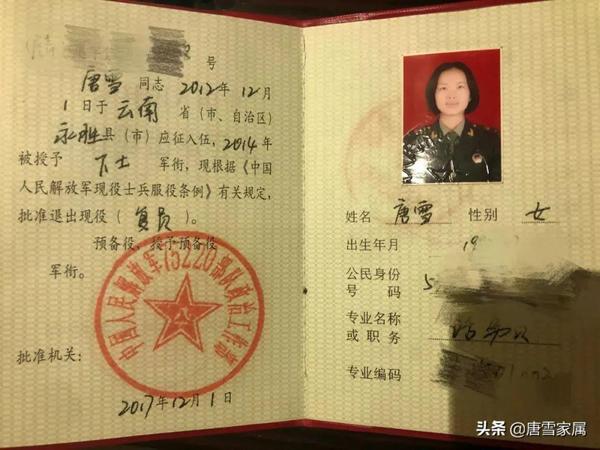 号
唐雪 同志 2012年12月
1日于 云南 省(市、自治区)
永胜县(市)应征入伍,2014年
被授予 下士 军衔,现根据《中国
人民解放军现役士兵服役条例》有关规定,
批准退出现役(复员)。
预备役、授予预备役
军衔。
中国人民解放军75220部队政治工作部
批准机关:
2017年12月1日
姓名 唐雪 性别 女
出生年月 19
公民身份 5
号码
专业名称
或职务
专业编码
头条 @唐雪家属